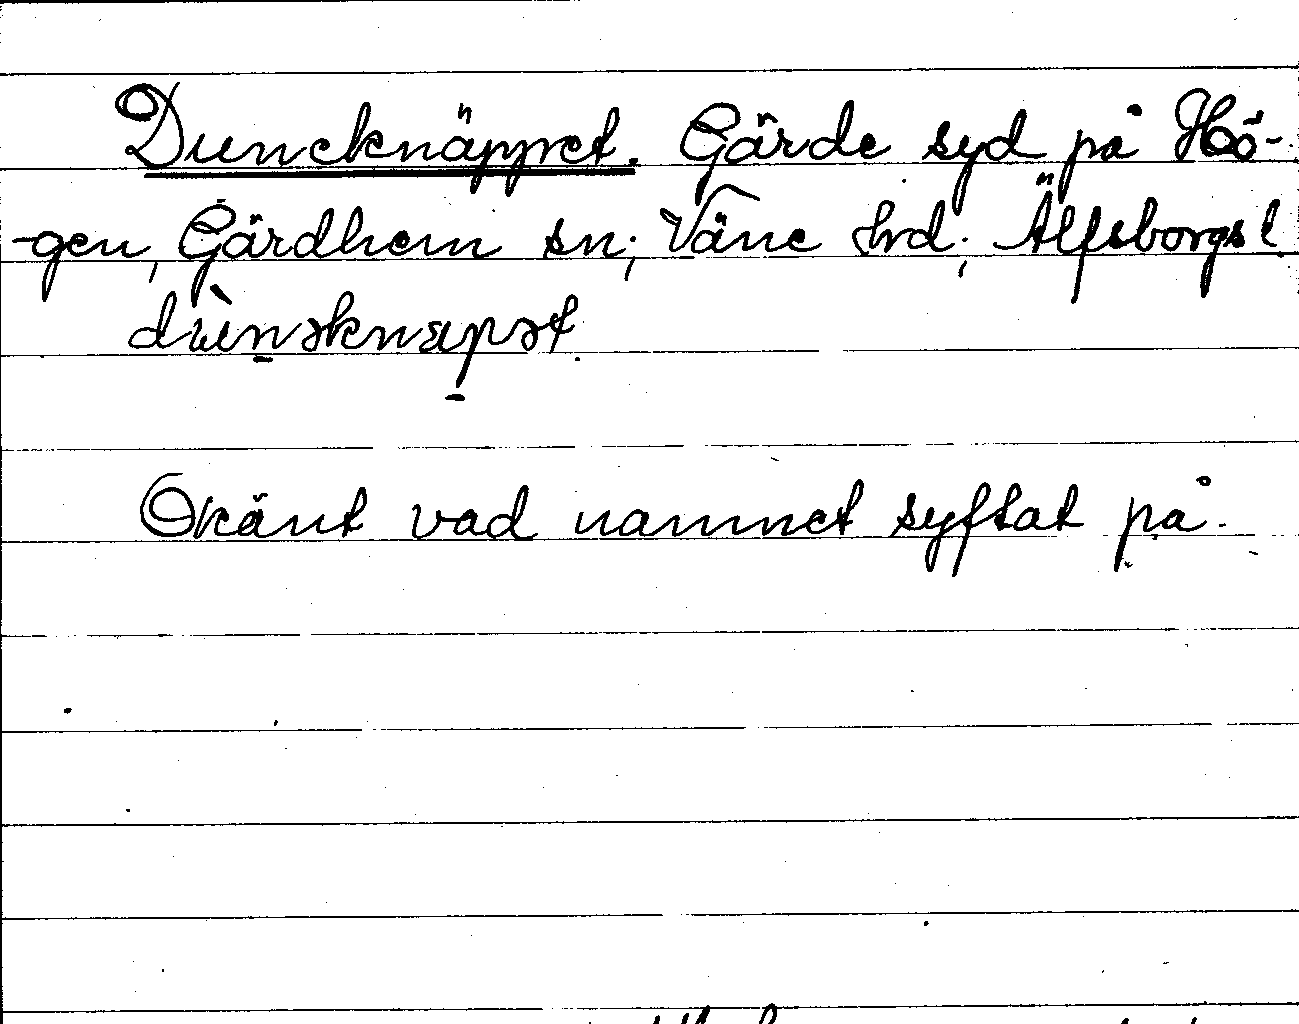 Duneknäppet. Gärde syd på Hö-
-gen, Gärdhem sn; Väne hrd; Älfsborgs l
Okänt vad namnet syftat på.